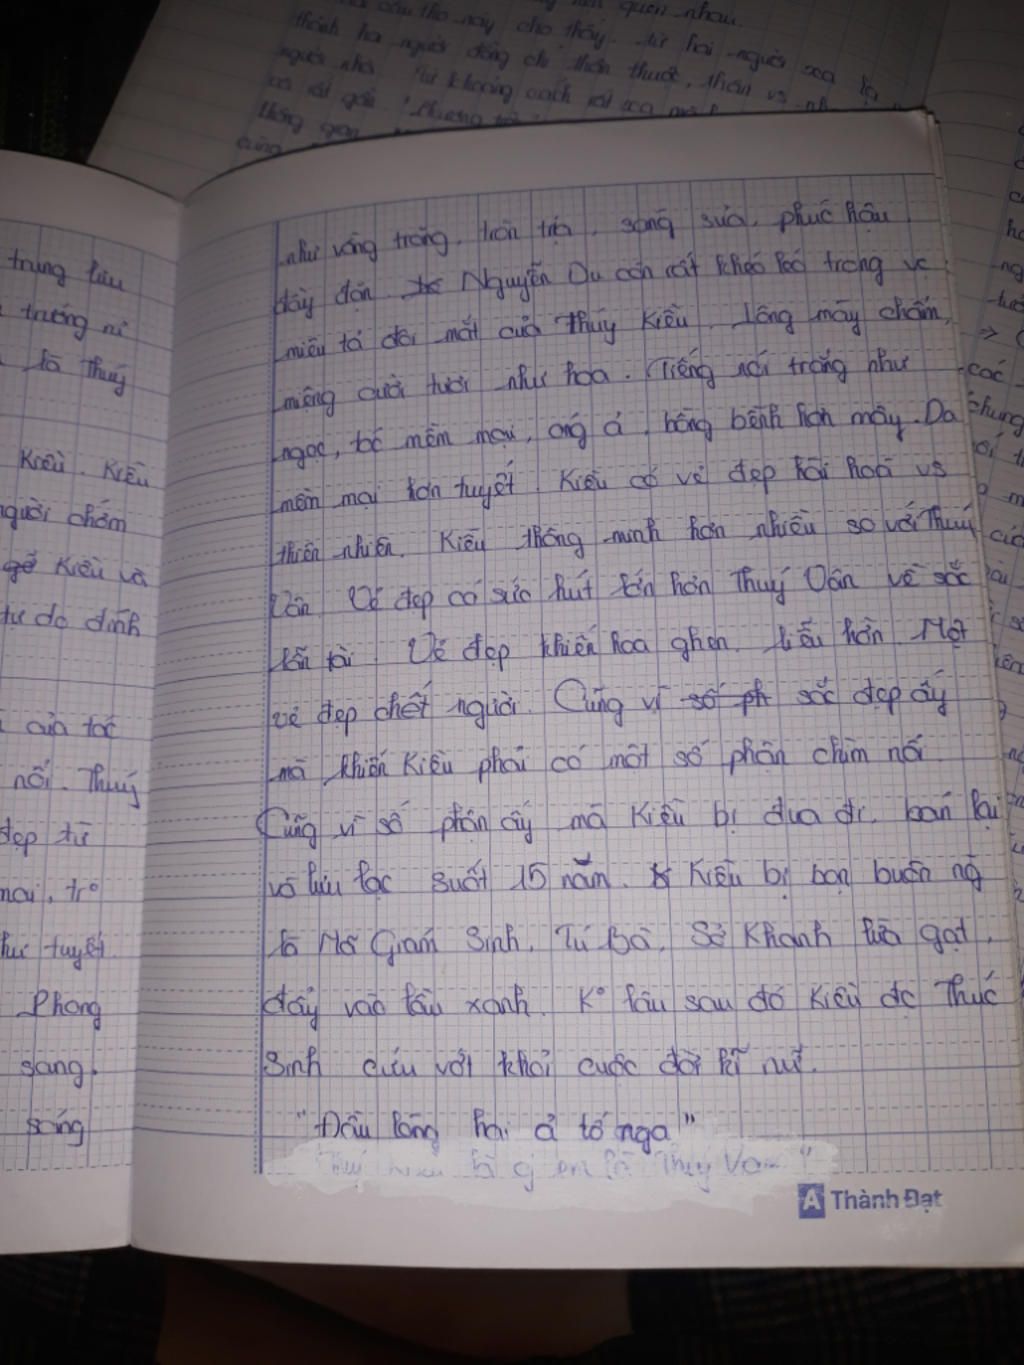 quen nhau.
câu thơ này cho thấy. từ hai người xa lạ
thành hai người đồng chí thân thuộc, thân và
người nhà từ khoảng cách rất xa
cùng
trung lưu
tướng ni
là Thuý
Kiều. Kiều
người chớm
Kiều và
tự do đính
của tác
nổi. Thuý
đẹp từ
mai, tr°
như tuyết.
Phong
sang.
sống
như vầng trăng, tròn trịa, sáng sủa, phúc hậu
đầy đặn. Nguyễn Du còn rất khéo léo trong vc
miêu tả đôi mắt của Thuý Kiều. Lông mày chấm,
miệng cười tươi như hoa. Tiếng nói trong như
ngọc, tóc mềm mại, óng ả, bồng bềnh hơn mây. Da
mềm mại hơn tuyết. Kiều có vẻ đẹp hài hoà vs
thiên nhiên. Kiều thông minh hơn nhiều so với Thuý
Vân. Vẻ đẹp có sức hút lớn hơn Thuý Vân về sắc
lẫn tài. Vẻ đẹp khiến hoa ghen, liễu hờn. Một
vẻ đẹp chết người. Cũng vì số ph sắc đẹp ấy
mà khiến Kiều phải có một số phận chìm nổi.
Cũng vì số phận ấy mà Kiều bị đưa đi, bán lại
và lưu lạc suốt 15 năm. Kiều bị bọn buôn ng
là Mã Giám Sinh, Tú Bà, Sở Khanh lừa gạt,
đẩy vào lầu xanh. K° lâu sau đó Kiều đc Thúc
Sinh cứu với khỏi cuộc đời kĩ nữ.
"Đầu lòng hai ả tố nga"
là Thuý Vân"
A Thành Đạt